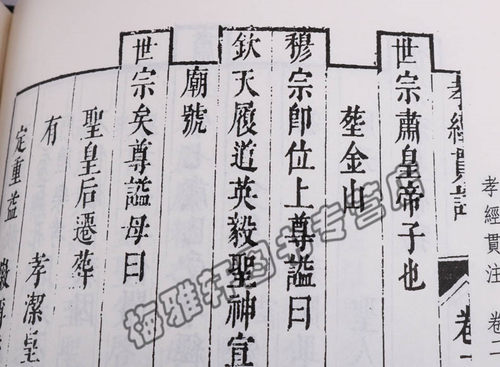 孝經貫注 卷二
孝經貫註 卷
世宗肅皇帝子也
葬金山
穆宗即位上尊謚曰
欽天履道英毅聖神宣
廟號
世宗矣尊謚母曰
聖皇后遷葬
有 孝潔皇
定重謚
梅雅轩图书专营店